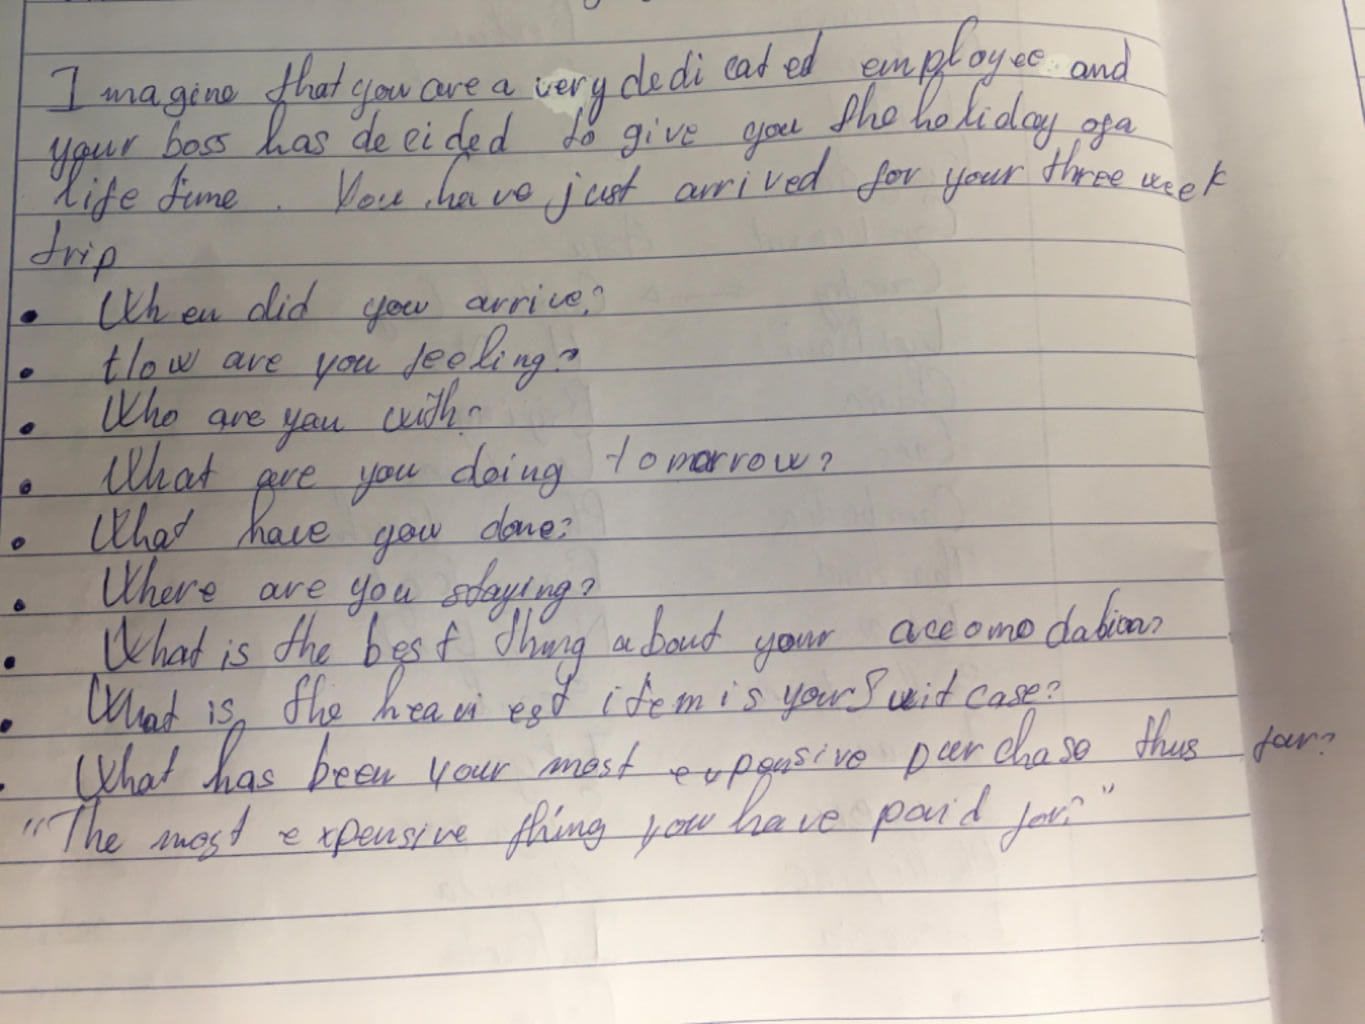 Imagine that you are a very dedicated employee and
your boss has decided to give you the holiday of a
life time. You have just arrived for your three week
trip
• When did you arrive?
• How are you feeling?
• Who are you with?
• What are you doing tomorrow?
• What have you done?
• Where are you staying?
• What is the best thing about your accomodation?
• What is the heaviest item is your Suitcase?
• What has been your most expensive purchase thus far?
"The most expensive thing you have paid for?"